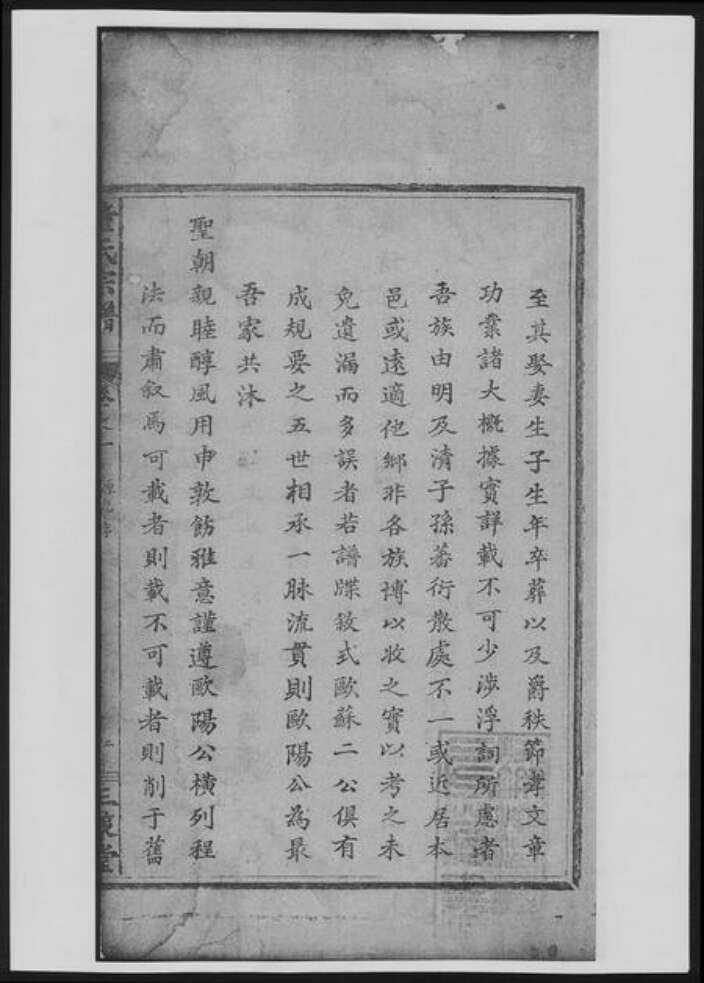 至其娶妻生子生年卒葬以及爵秩節孝文章
功業諸大槪據實詳載不可少涉浮詞所慮者
吾族由明及清子孫蕃衍散處不一或近居本
邑或遠適他鄉非各族博以收之實以考之未
免遺漏而多誤者若譜牒敘式歐蘇二公俱有
成規要之五世相承一脉流貫則歐陽公為最
吾家共沐
聖朝親睦醇風用申敦飭雅意謹遵歐陽公橫列程
法而肅叙焉可載者則載不可載者則削于舊
氏宗譜
卷之一
三槐堂